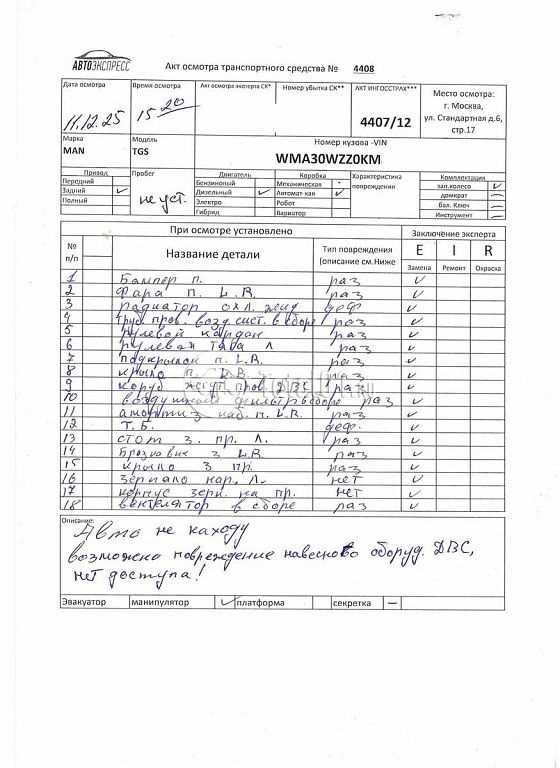 АВТОЭКСПРЕСС
Акт осмотра транспортного средства № 4408
Дата осмотра
11.12.25
Время осмотра
15 20
Акт осмотра эксперта СК*
Номер убытка СК**
АКТ ИНГОССТРАХ***
4407/12
Место осмотра:
г. Москва,
ул. Стандартная д.6,
стр.17
Марка
MAN
Модель
TGS
Номер кузова -VIN
WMA30WZZ0KM
Привод
Передний
Задний ✓
Полный
Пробег
не уст.
Двигатель
Бензиновый
Дизельный ✓
Электро
Гибрид
Коробка
Механическая
Автомат-кая ✓
Робот
Вариатор
Характеристика
повреждения
Комплектация
зап.колесо ✓
домкрат —
бал. Ключ —
Инструмент —
При осмотре установлено
Заключение эксперта
№ п/п
Название детали
Тип повреждения
(описание см.Ниже
E I R
Замена Ремонт Окраска
1 Бампер п. раз ✓
2 Фара п. L.R. раз ✓
3 радиатор охл. жид деф ✓
4 труб. пров. возд. сист. в сборе раз ✓
5 рулевой кардан раз ✓
6 рулевая тяга Л раз ✓
7 подкрылок п. L.R. раз ✓
8 крыло п. L.R. раз ✓
9 короб жгут. пров. ДВС раз ✓
10 воздушный фильтр в сборе раз ✓
11 амортиз каб. п. L.R. раз ✓
12 Т.Б. деф. ✓
13 стоп з. пр. Л. раз ✓
14 Брызковик з L.R. раз ✓
15 крыло з пр. раз ✓
16 зеркало нар. Л. нет ✓
17 корпус зерк. на пр. нет ✓
18 вентелятор в сборе раз ✓
Описание:
Авто не на ходу
возможно повреждение навесного оборуд. ДВС,
нет доступа!
Эвакуатор манипулятор ✓ платформа секретка —